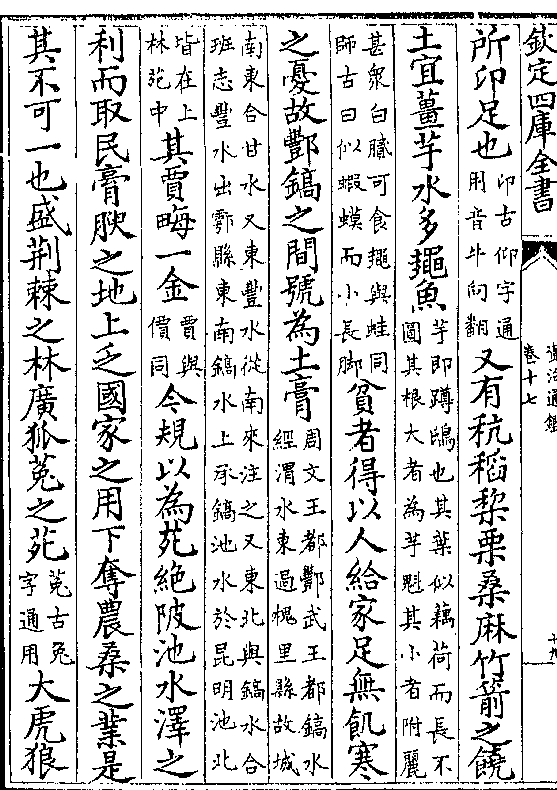 欽定四庫全書
資治通鑑
卷十七
所卬足也卬古仰字通用音牛向翻又有秔稻梨栗桑麻竹箭之饒
土宜薑芋水多䵷魚芋即蹲鴟也其葉似藕荷而長不圓其根大者為芋魁其小者附麗
甚衆白膩可食䵷與蛙同師古曰似蝦蟆而小長脚貧者得以人給家足無飢寒
之憂故酆鎬之間號為土膏周文王都酆武王都鎬水經渭水東過槐里縣故城
南東合甘水又東豐水從南來注之又東北與鎬水合班志豐水出鄠縣東南鎬水上承鎬池水於昆明池北
皆在上林苑中其賈畮一金賈與價同今規以為苑絶陂池水澤之
利而取民膏腴之地上乏國家之用下奪農桑之業是
其不可一也盛荆棘之林廣狐菟之苑菟古兔字通用大虎狼